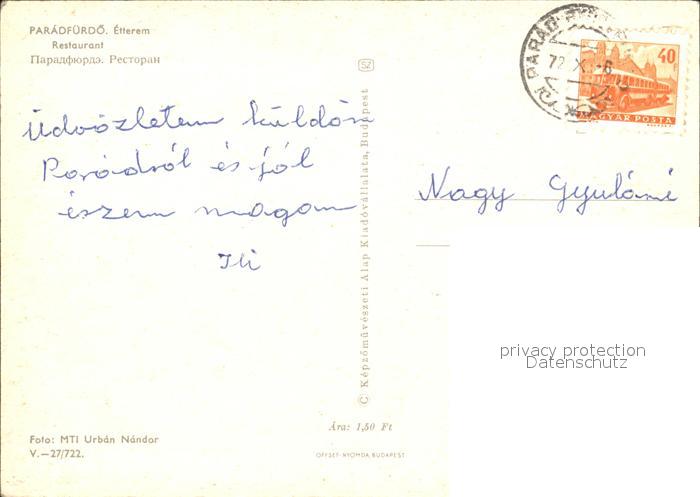 PARÁDFÜRDŐ. Étterem
Restaurant
Парадфюрдэ. Ресторан
SZ
40 F
MAGYAR POSTA
Üdvözletem küldöm
Parádról és jól
érzem magam
Ili
Nagy Gyuláné
© Képzőművészeti Alap Kiadóvállalata, Budapest
privacy protection
Datenschutz
Ára: 1,50 Ft
Foto: MTI Urbán Nándor
V.—27/722.
OFFSET-NYOMDA, BUDAPEST